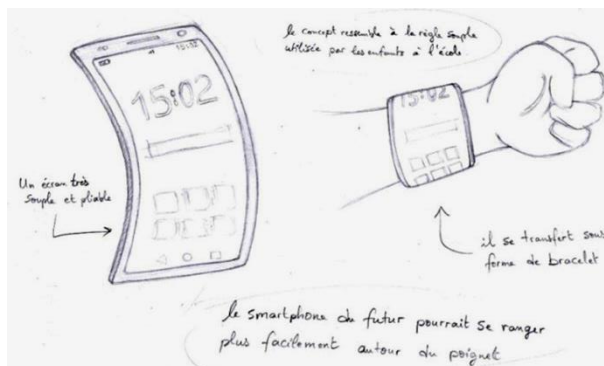 le concept ressemble à la règle souple
utilisée par les enfants à l'école.
15:02
15:02
15:02
Un écran très
souple et pliable
il se transfert sous
forme de bracelet
le smartphone du futur pourrait se ranger
plus facilement autour du poignet